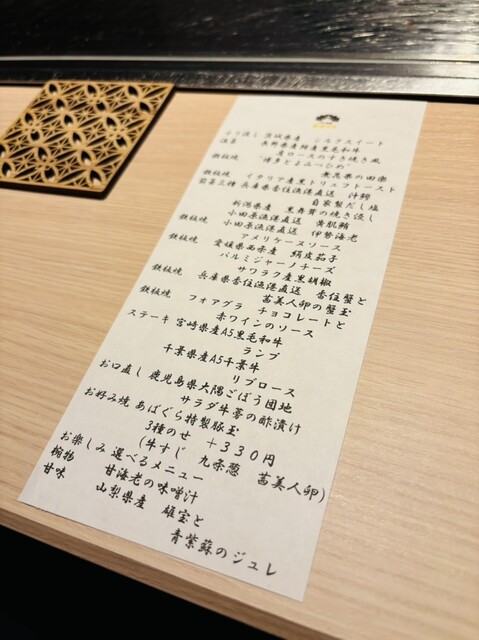 すり流し 茨城県産 シルクスイート
温菜 長野県産鞍産黒毛和牛
肩ロースのすき焼き風
鉄板焼 "博多とよみつひめ"
無花果の田楽
鉄板焼 イタリア産黒トリュフトースト
前菜三種 兵庫県香住漁港直送 沖鯛
自家製だし塩
新潟県産 黒舞茸の焼き浸し
小田原漁港直送 黄肌鮪
鉄板焼 小田原漁港直送 伊勢海老
アメリケーヌソース
鉄板焼 愛媛県西条産 絹皮茄子
パルミジャーノチーズ
サワラク産黒胡椒
鉄板焼 兵庫県香住漁港直送 香住蟹と
茜美人卵の蟹玉
鉄板焼 フォアグラ チョコレートと
赤ワインのソース
ステーキ 宮崎県産A5黒毛和牛
ランプ
千葉県産A5千葉牛
リブロース
お口直し 鹿児島県大隅ごぼう団地
サラダ牛蒡の酢漬け
お好み焼 あばぐら特製豚玉
3種のせ +330円
(牛すじ 九条葱 茜美人卵)
お楽しみ 選べるメニュー
椀物 甘海老の味噌汁
甘味 山梨県産 雄宝と
青紫蘇のジュレ